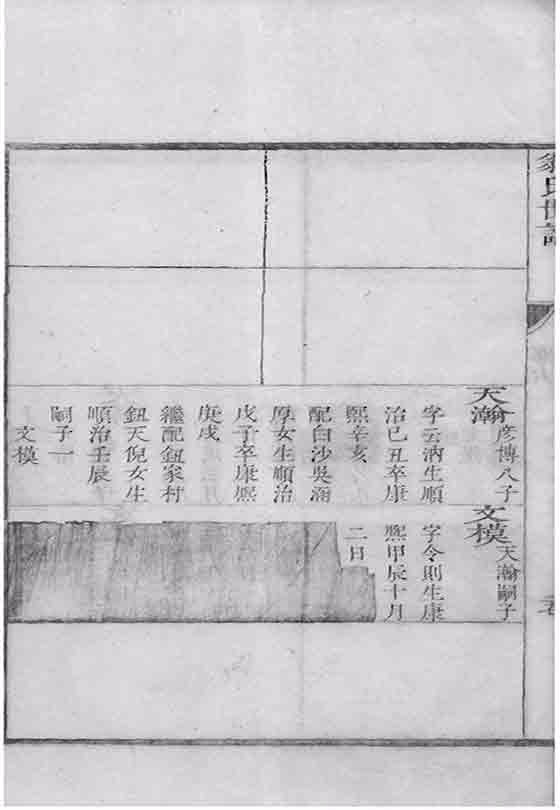 翁氏世譜
天瀚 彦博八子
字云汭生順
治己丑卒康
熙辛亥
配白沙吳涵
厚女生順治
戊子卒康熙
庚戌
繼配鈕家村
鈕天倪女生
順治壬辰
嗣子一
文模
文模 天瀚嗣子
字令則生康
熙甲辰十月
二日